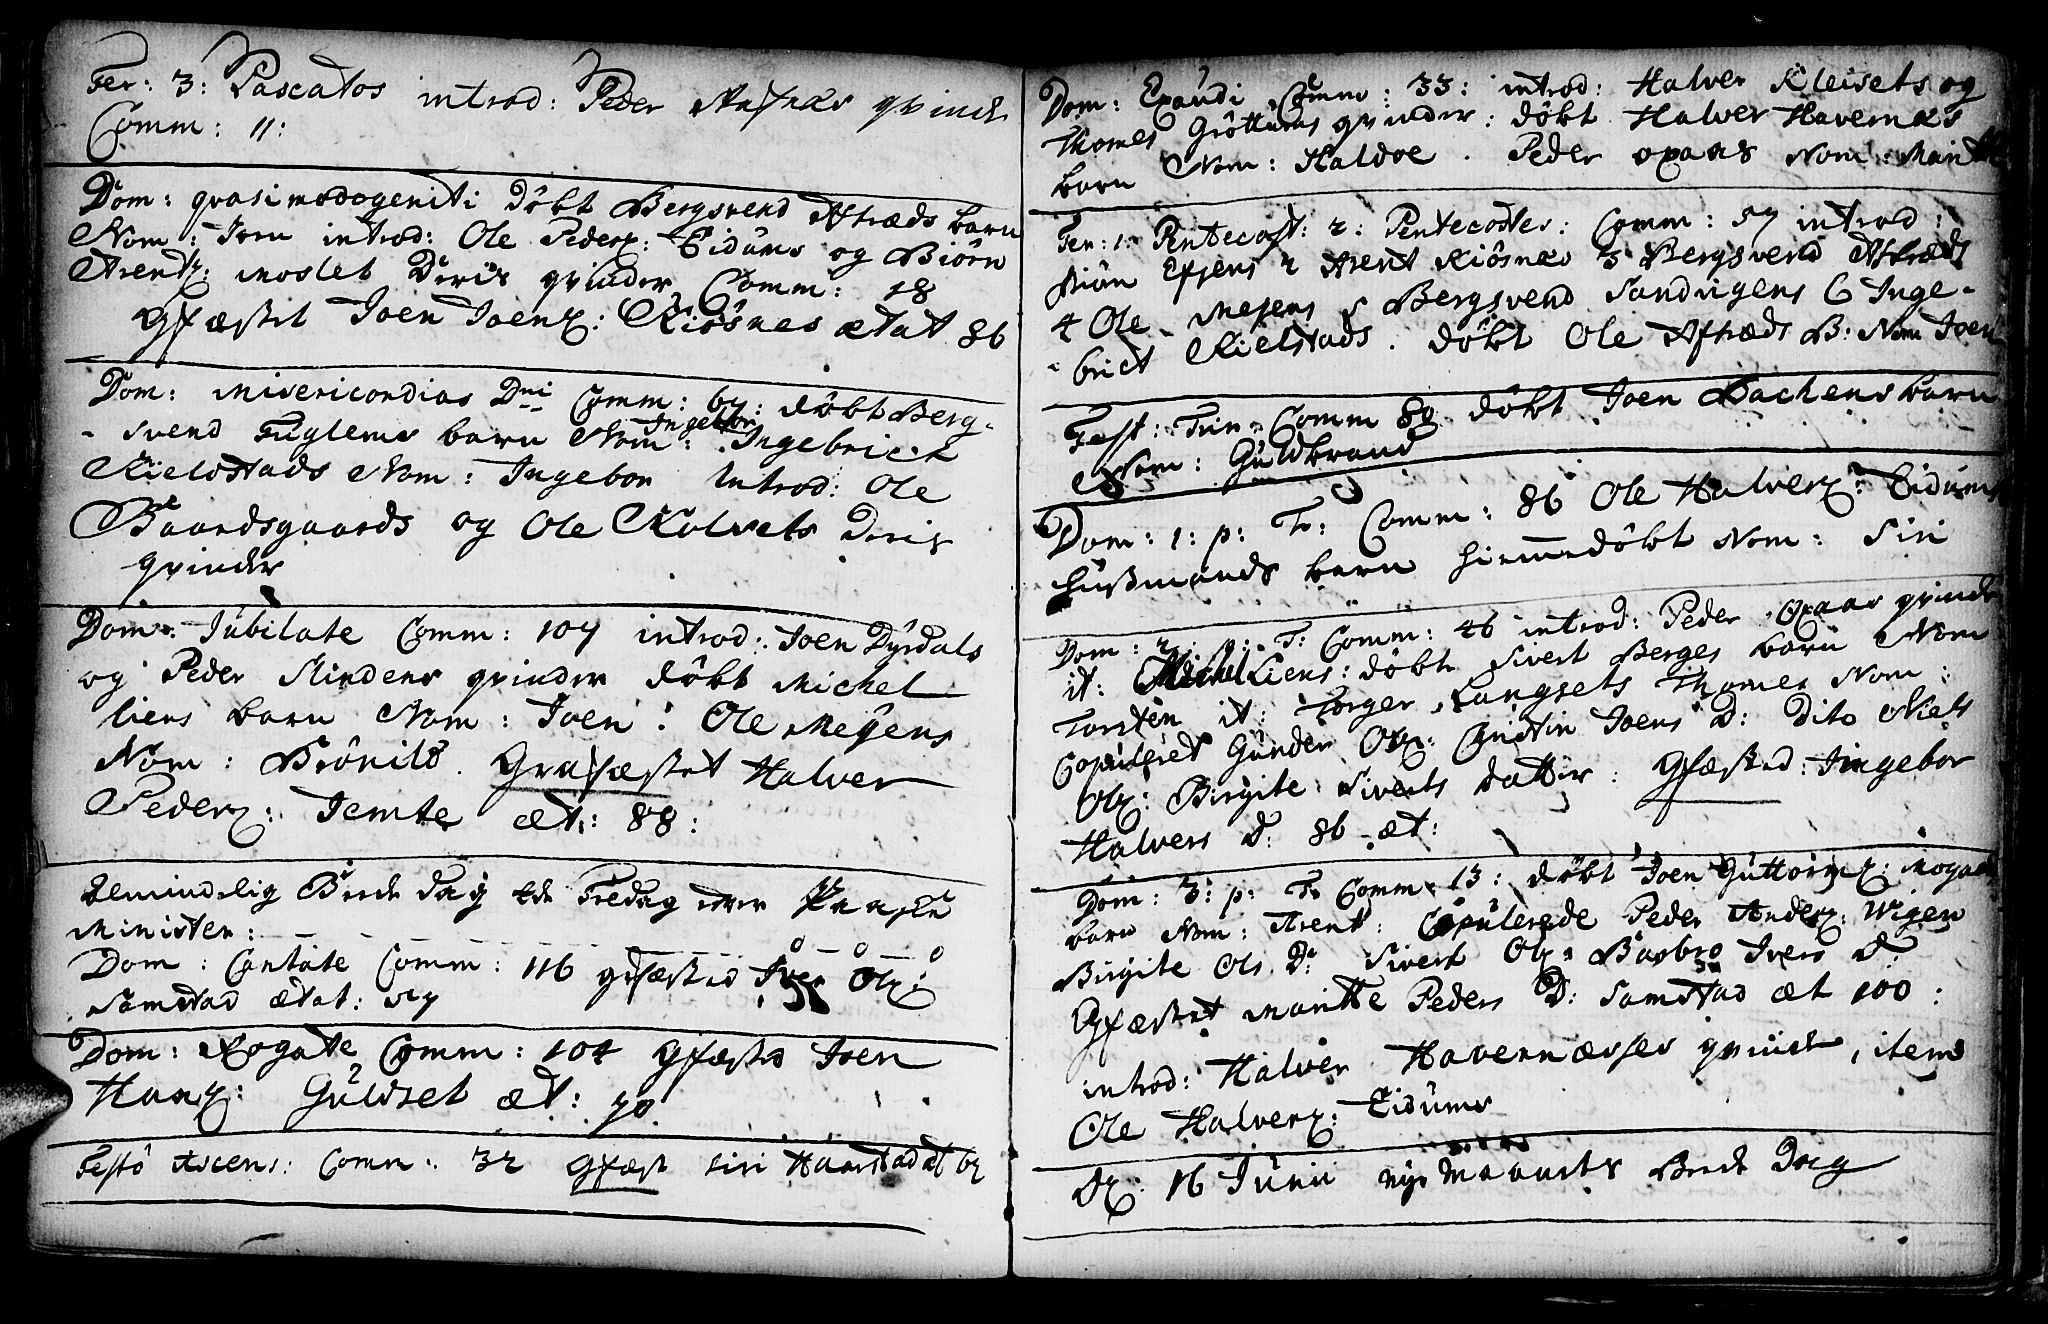 Fer: 3: Pascatos introd: Peder qvinde
Comm: 11:
Dom: qvasimodogeniti Döbt Bergsvend Aftræds barn
Nom: Iern introd: Ole Peders: Eidums og Biörn
Arents: Moslet Deris qvinder Comm: 18
Gfæstet Joen Joens: Kiösnes ætat 86
Dom: Misericordias Dni Comm: 67: döbt Berg-
-svend Fuglems barn Nom: Ingebor Ingebrict
Kielstads Nom: Ingebor Introd: Ole
Baardsgaards og Ole Kolsets Deris
qvinder
Dom: Jubilate Comm: 107 introd: Joen Dyrdals
og Peder Slindens qvinder döbt Michel
liens barn Nom: Joen: Ole Mejens
Nom: Brönild. Grafæstet Halver
Peders: Jemte æt: 88:
Almindelig Bede dag 4de Fredag efter Paaske
Minister:
Dom: Cantate Comm: 116 gfæsted Iver Ols:
Samstad ætat: 57
Dom: Rogate Comm: 104 Gfæsted Joen
Hans: Guldset æt: 70
Festo Ascens: Comm: 32 Gfæst Siri Haarstad æt 67
Dom: Exaudi Comm: 33: introd: Halver Kleisets og
Thomes Gröttems qvinder: döbt Halver Havernæs
barn Nom: Haldoe. Peder oxaas Nom: Marit
Fer: 1: Pentecost: 2: Pentecostes: Comm: 57 introd:
Biön Efjens 2 Arent Kiösnæs 3 Bergsvend Aftræds
4 Ole Mejens 5 Bergsvend Sandvigens 6 Inge-
-brict Kielstads. döbt Ole Aftræds B: Nom Joen
Fest: Trin: Comm 89 döbt Joen Bachens barn
Nom: Guldbrand
Dom: 1: p: Tr: Comm: 86 Ole Halvers: Eidums
Husmands barn hiemmedöbt Nom: Siri
Dom: 2: p: T: Comm: 46 introd: Peder Oxaas qvinde
it: Michel Liens: döbt Sivert Berges barn Nom
Torsten it: Torger Langsets Thomes Nom:
Copuleret Gunder Ols: Cristin Joens D: Dito Niels
Ols: Birgite Siverts datter: Gfæsted: Ingebor
Halvers D: 86 æt:
Dom: 3: p: Tr Comm: 13: döbt Joen Guttorms: Mogaas
barn Nom: Arent: Copulerede Peder Anders: Wigen
Birgite Ols D: Sivert Ols: Barbro Ivers D:
Gfæstet Maritte Peders D: Samstad æt 100:
introd: Halver Havernæsses qvinde, item
Ole Halvers: Eidums
D: 16 Junii nye Maaneds Bede Dag